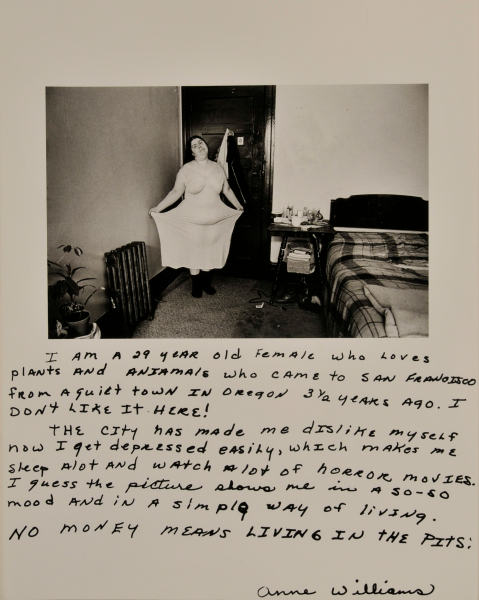 I AM A 29 year old Female who Loves
plants AND ANIAMALS who CAME to SAN FRANCISCO
From A quiet town IN OREGON 3 1/2 years Ago. I
DON't LIKE It HERE!
THE CITY HAS MADE ME DISLIKE myself
now I get depressed easily, which makes me
sleep Alot AND watch Alot of horror movies.
I guess the picture shows me in A so-so
mood AND in A simple way of living.
NO MONEY MEANS LIVING IN the PITS!
Anne Williams